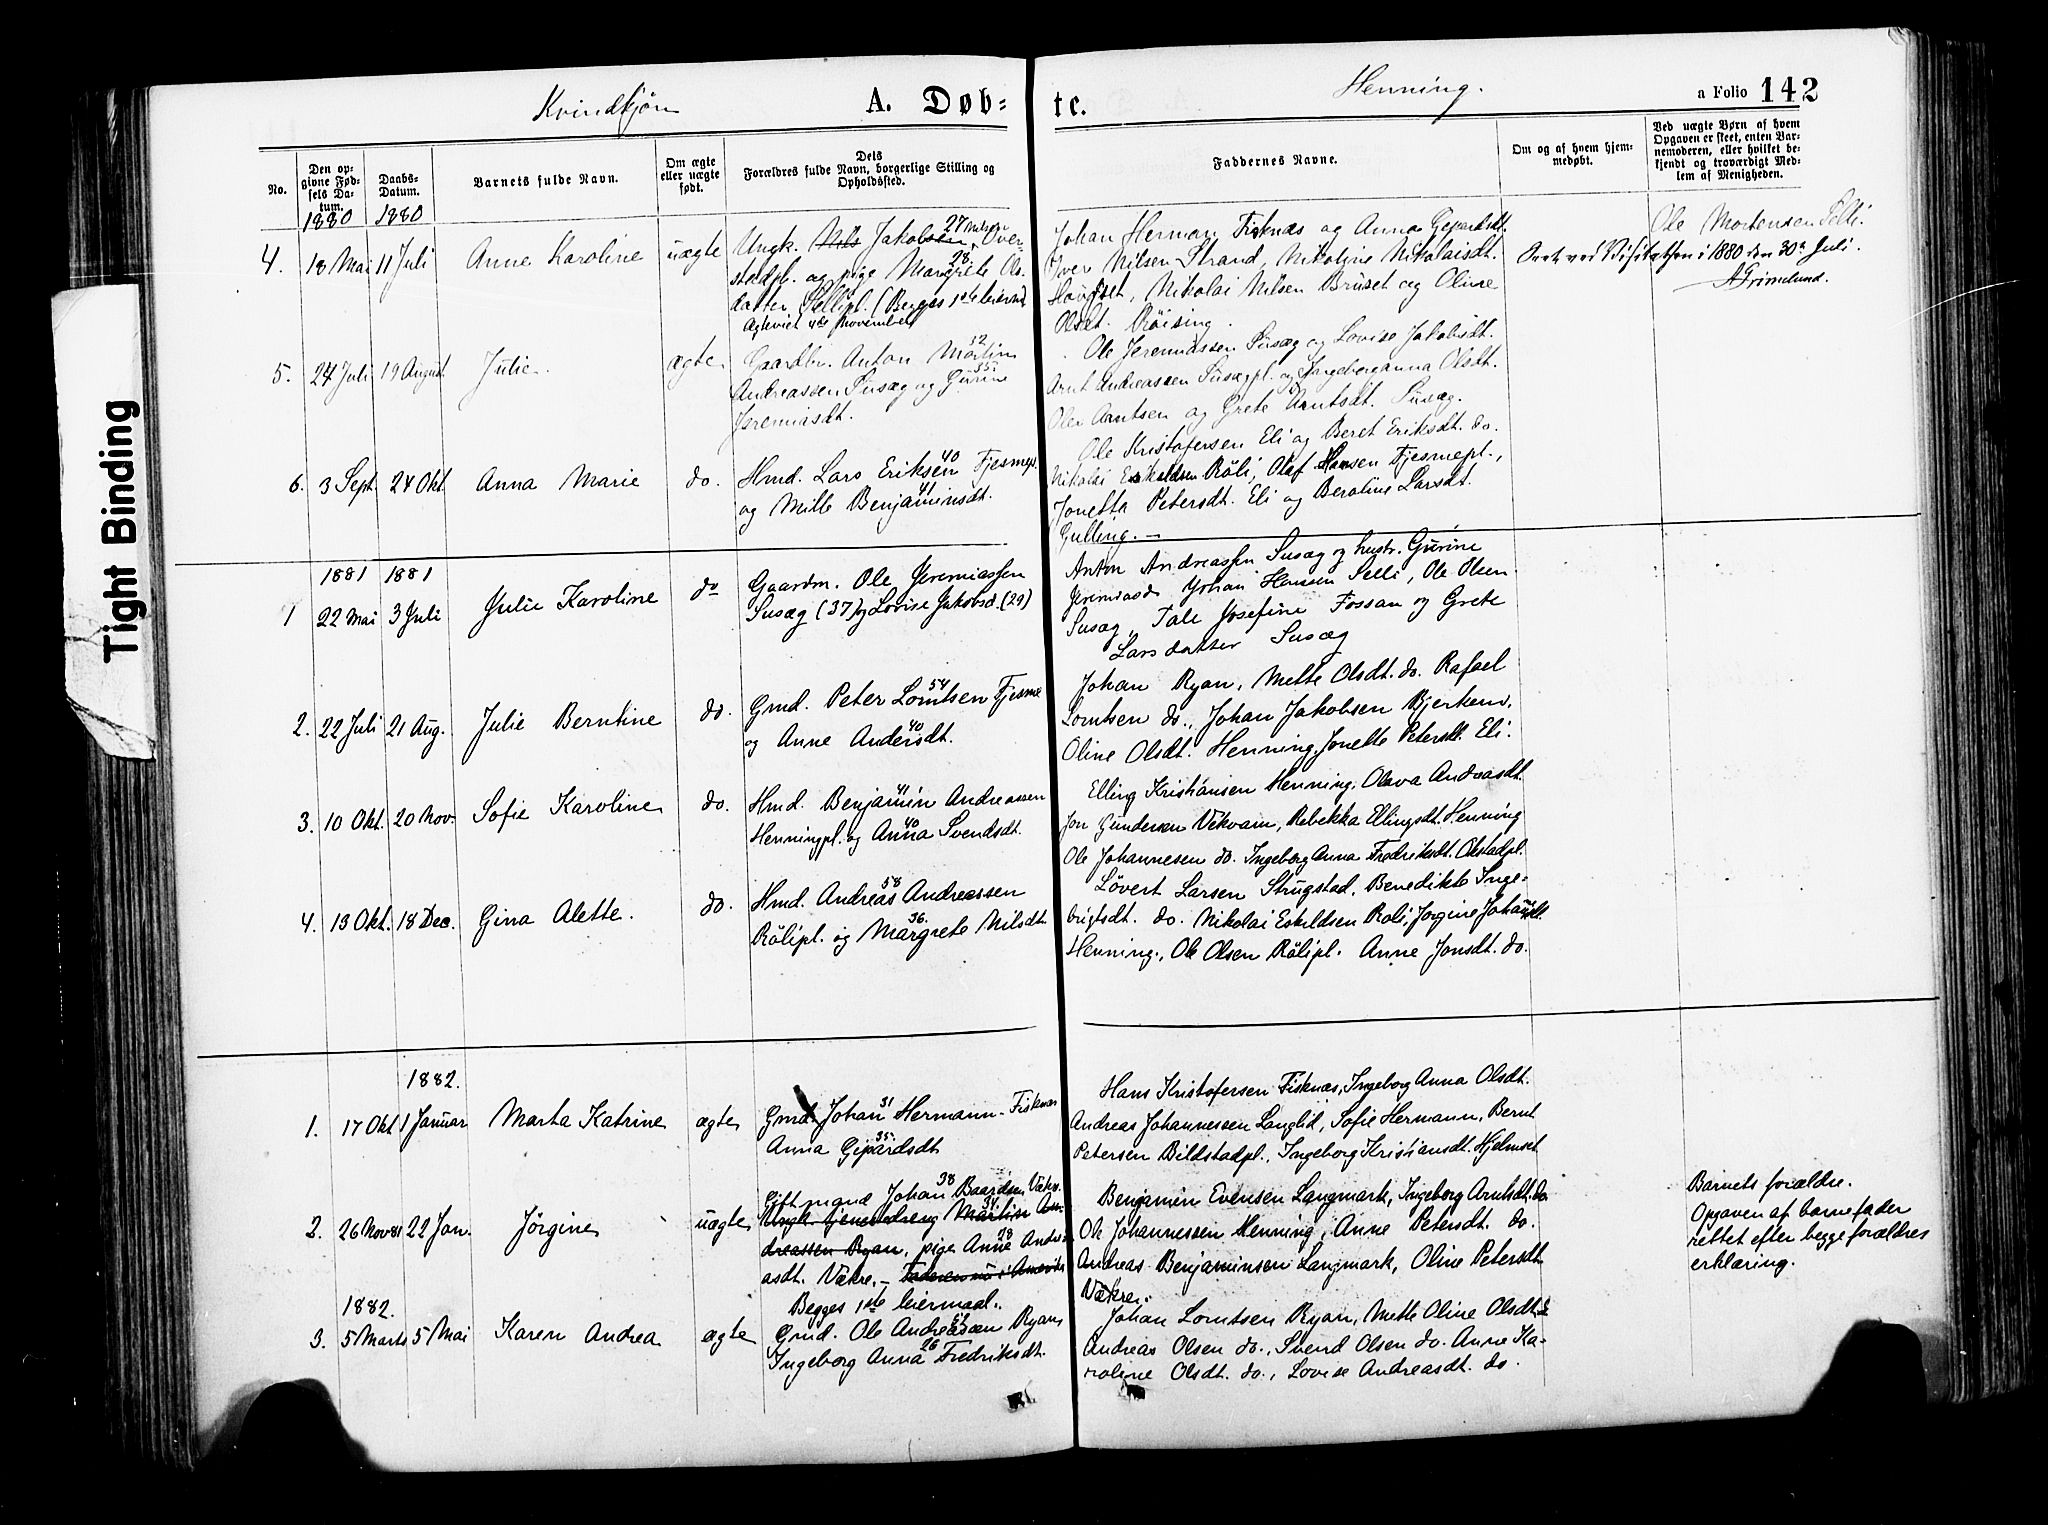 Kvindkjøn
A. Døb=
te.
Henning.
a Folio 142
No.
Den op-
givne Fød-
sels Da-
tum.
Daabs-
Datum.
Barnets fulde Navn.
Om ægte
eller uægte
født.
Dets
Forældres fulde Navn, borgerlige Stilling og
Opholdssted.
Faddernes Navne.
Om og af hvem hjem-
medøbt.
Ved uægte Børn af hvem
Opgaven er skeet, enten Bar-
nemoderen, eller hvilket be-
kjendt og troværdigt Med-
lem af Menigheden.
1880 1880
4. 18 Mai 11 Juli Anne Karoline uægte
Ungk. Nils Jakobsen 27 Over-
stadpl. og pige Margrete 28 Ols-
datter Sellipl. (Begges 1ste leierm)
Ægteviet 4de November
Johan Herman Fisknæs og Anna Gipardsdt.
Iver Nilsen Strand, Nikoline Nikolaisdt.
Nikolai Nilsen Bruset og Oline
Olsdt. Röising.
Ole Mortensen Selli.
Seet ved Visitatsen i 1880 den 30te Juli.
A Grimelund.
5. 24 Juli 19 August Julie. ægte
Gaardbr. Anton Martin 32
Andreassen Susæg og Gurine 35
Jeremiasdt.
Ole Jeremiassen Susæg og Lovise Jakobsdt.
Arnt Andreassen Susægpl. og Ingeberganna Olsdt.
Ole Arntsen og Grete Arntsdt. Susæg.
6. 3 Sept. 24 Okt Anna Marie do.
Hmd. Lars Eriksen 40 Fjesmepl.
og Mille Benjaminsdt. 41
Ole Kristofersen Eli og Beret Eriksdt. do.
Nikolai Eskeldsen Röli, Olaf Hansen Fjesmepl.,
Jonetta Petersdt. Eli og Beratine Larsdt.
Gulling. –
1881 1881
1 22 Mai 3 Juli Julie Karoline do
Gaardm. Ole Jeremiassen
Susæg (37) og Lovise Jakobsd. (29)
Anton Andreassen Susæg og hustr. Gurine
Jeremiasd. Johan Hansen Selli, Ole Olsen
Susæg, Tale Josefine Fossan og Grete
Larsdatter Susæg
2. 22 Juli 21 Aug. Julie Berntine do.
Gmd. Peter Lorntsen 54 Fjesme
og Anne Andersdt. 40
Johan Ryan, Mette Olsdt. do. Rafael
Lorntsen do., Johan Jakobsen Bjerkem,
Oline Olsdt. Henning, Jonette Petersdt. Eli.
3. 10 Okt. 20 Nov. Sofie Karoline do.
Hmd. Benjamin 41 Andreassen
Henningpl. og Anna 40 Svendsdt.
Elling Kristiansen Henning, Olava Andreasdt.
Jon Gundersen Vekvam, Rebekka Ellingsdt. Henning
Ole Johannesen do. Ingeborg Anna Fredriksdt. Okstadpl.
4. 13 Okt. 18 Dec. Gina Alette. do.
Hmd. Andreas 58 Andreassen
Rölipl. og Margrete 36. Nilsdt.
Lövert Larsen Strugstad, Benedikte Inge-
brigtsdt. do. Nikolai Eskildsen Röli, Jorgine Johansdt.
Henning., Ole Olsen Rölipl. Anne Jonsdt. do.
1882.
1. 17 Okt 1 Januar Marta Katrine ægte
Gmd. Johan 31 Hermann- Fisknæs
Anna Gipardsdt 35
Hans Kristofersen Fisknæs, Ingeborg Anna Olsdt.
Andreas Johannessen Langlid, Sofie Hermann, Bernt
Petersen Bildstadpl., Ingeborg Kristiansdt. Hjelmset
2. 26 Nov 81 22 Jan. Jörgine uægte
Gift mand Johan 38 Baardsen Vækre.
Ungk. tjenestedreng Martin 34 An-
dreassen Ryan, pige Anne 28 Andre-
asdt. Vækre. – Faderen nu i Amerika
Begges 1ste leiermaal.
Benjamin Evensen Langmark, Ingeborg Arntsdt. do.
Ole Johannessen Henning, Anne Petersdt. do.
Andreas Benjaminsen Langmark, Oline Petersdt
Vækre.
Barnets forældre.
Opgaven af barnefader
rettet efter begge forældres
erklæring.
1882.
3. 5 Marts 5 Mai Karen Andrea ægte
Gmd. Ole Andreassen Ryan,
Ingeborg Anna 26 Fredriksdt.
Johan Lorntsen Ryan, Mette Oline Olsdt.
Andreas Olsen do., Svend Olsen do. Anne Ka-
roline Olsdt. do., Lovise Andreasdt. do.
Tight Binding